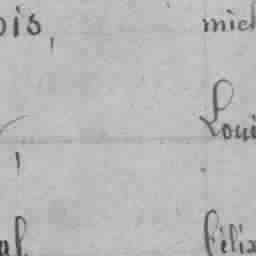 ois, mich
Loui
al Félix